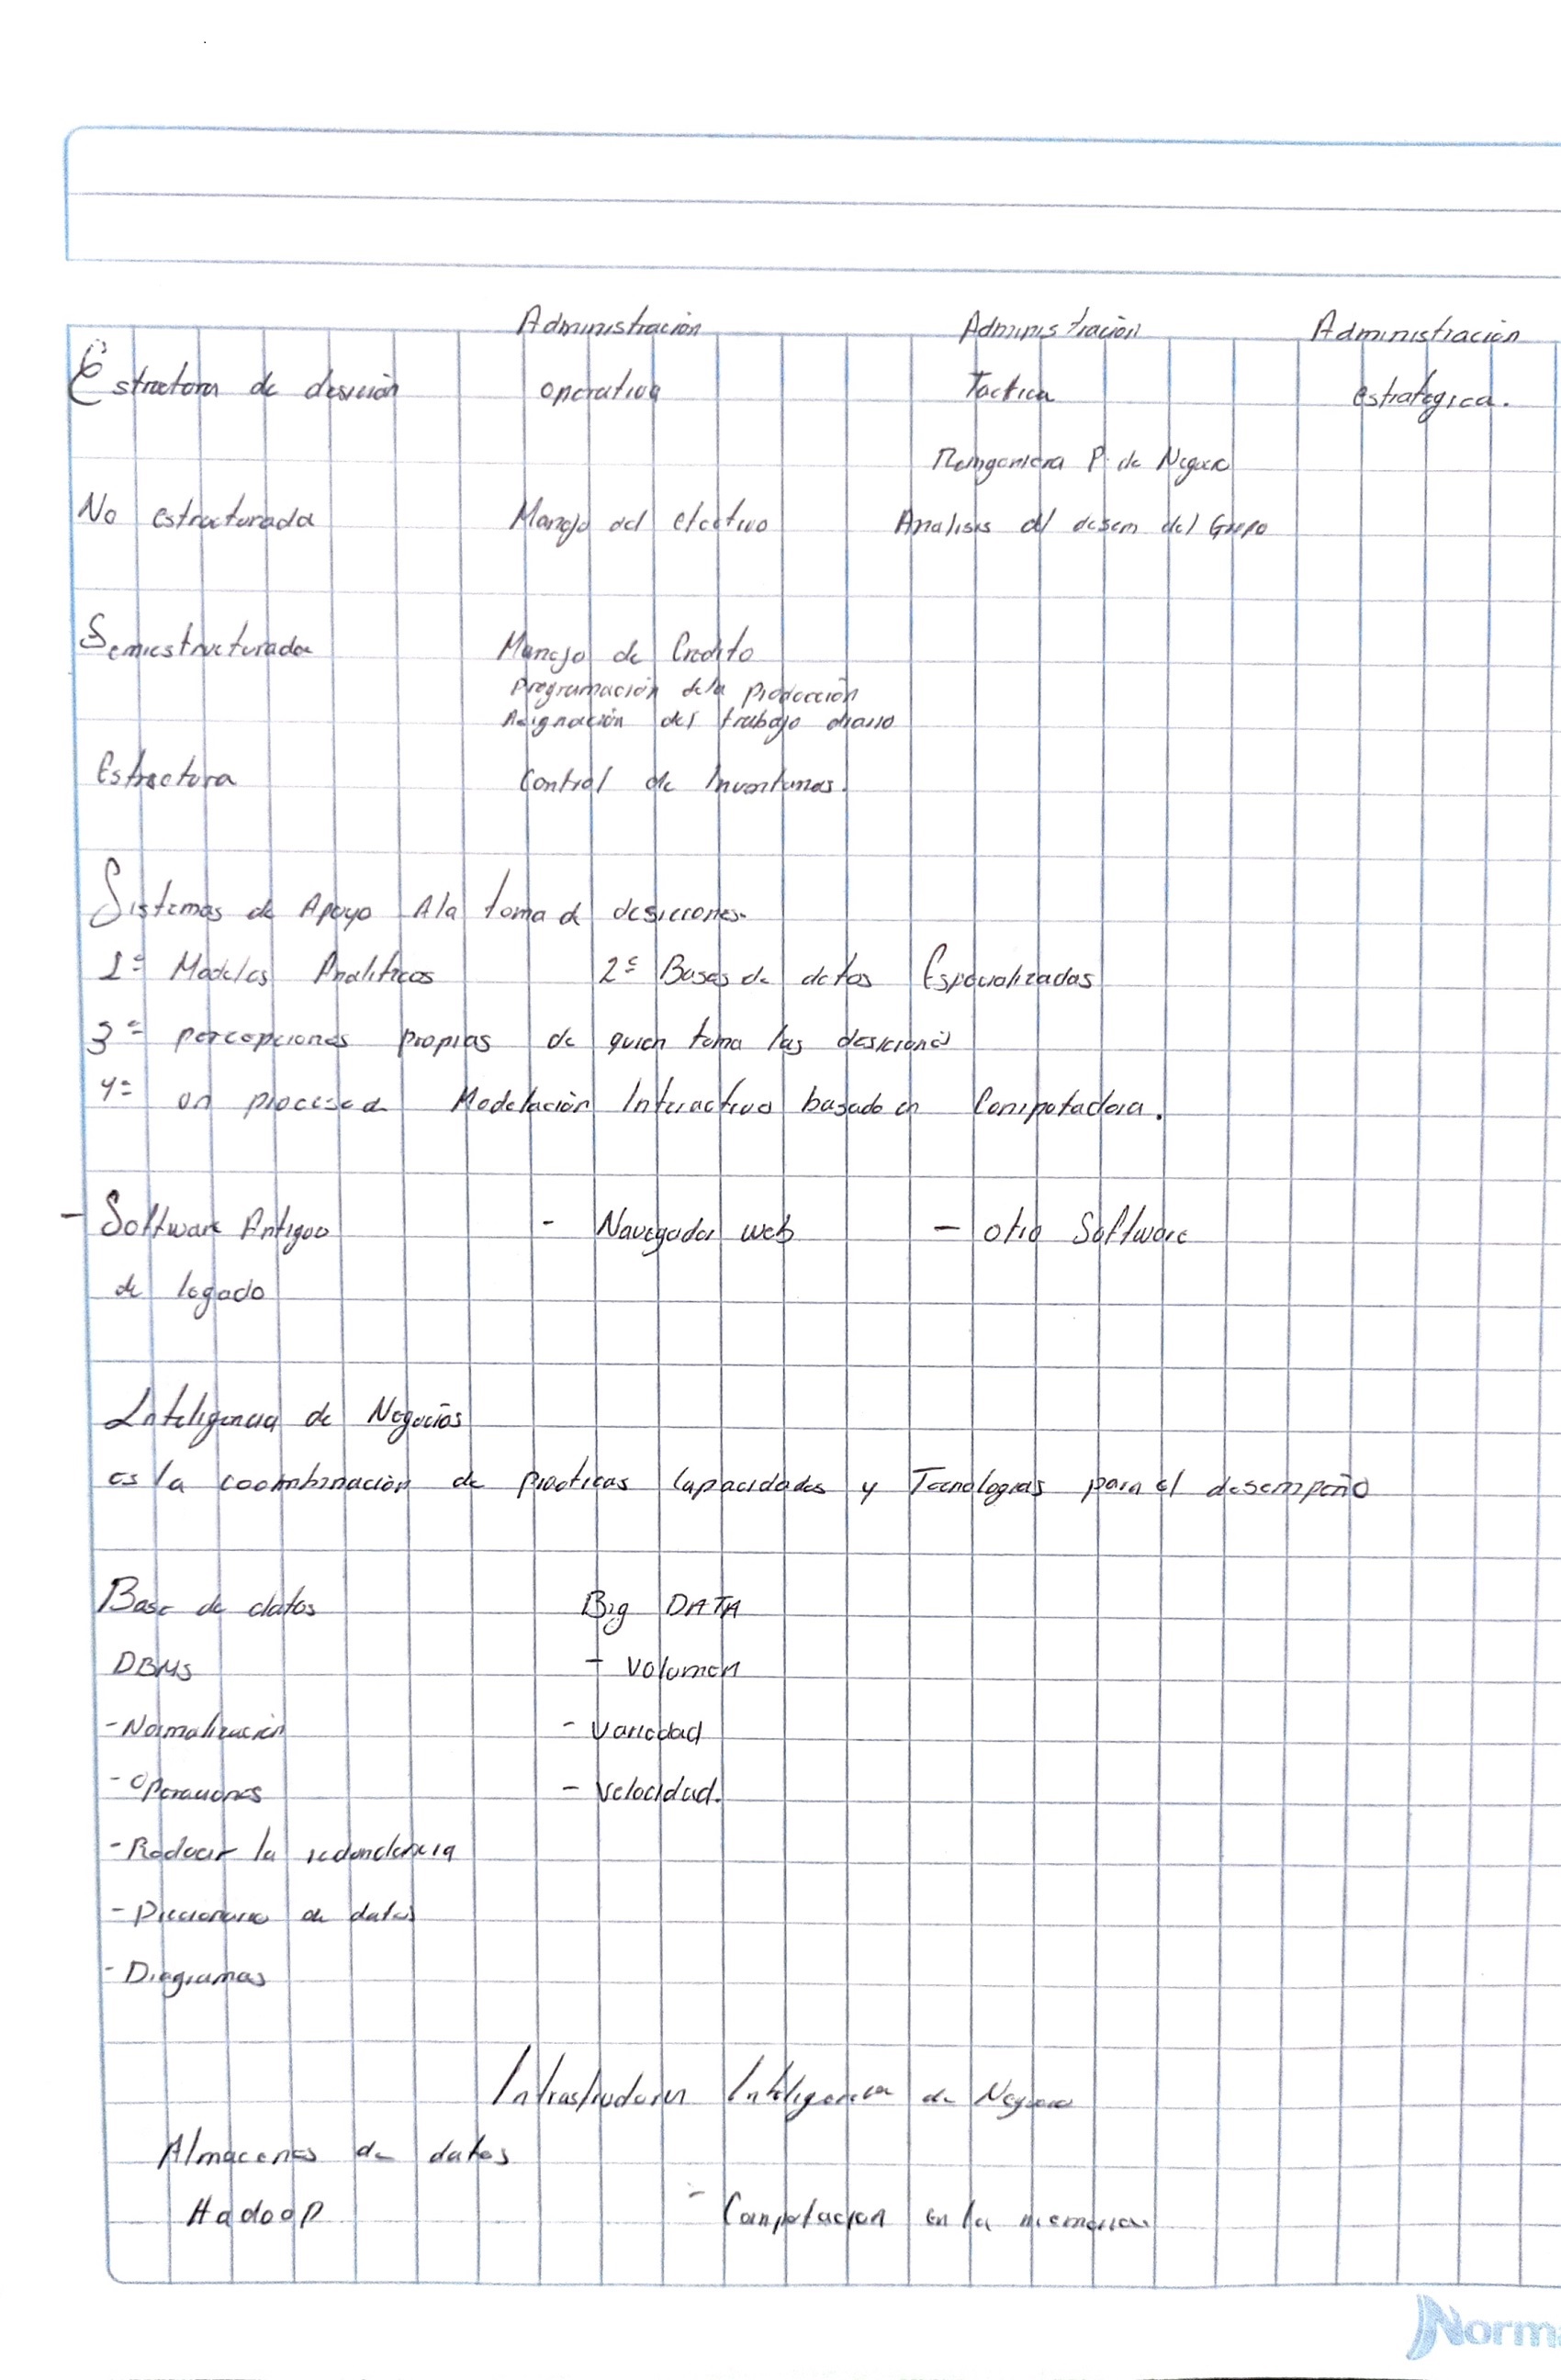 Administración Administración Administración
Estructura de desición operativa Tactica estrategica.
Reingenieria P. de Negocio
No estructurada Manejo del efectivo Analisis dl desem del Grupo
Semiestructurada Manejo de Credito
Programación dela producción
Asignación del trabajo diario
Estructura Control de Inventarios.
Sistemas de Apoyo A la toma d desiciones.
1º Modelos Analiticos 2º Bases de datos Especializadas
3º percepciones propias de quien toma las desiciones
4º un proceso d Modelación Interactivo basado en Computadora.
- Software Antiguo - Navegador web - otro Software
de legado
Inteligencia de Negocios
es la coombinación de practicas Capacidades y Tecnologias para el desempeño
Base de datos Big DATA
DBMS - Volumen
- Normalización - Variedad
- Operaciones - Velocidad.
- Reducir la redundencia
- Diccionario de datos
- Diagramas
Infrastructura Inteligencia de Negocio
Almacenes de datos
Hadoop - Computacion en la memoria
Norma